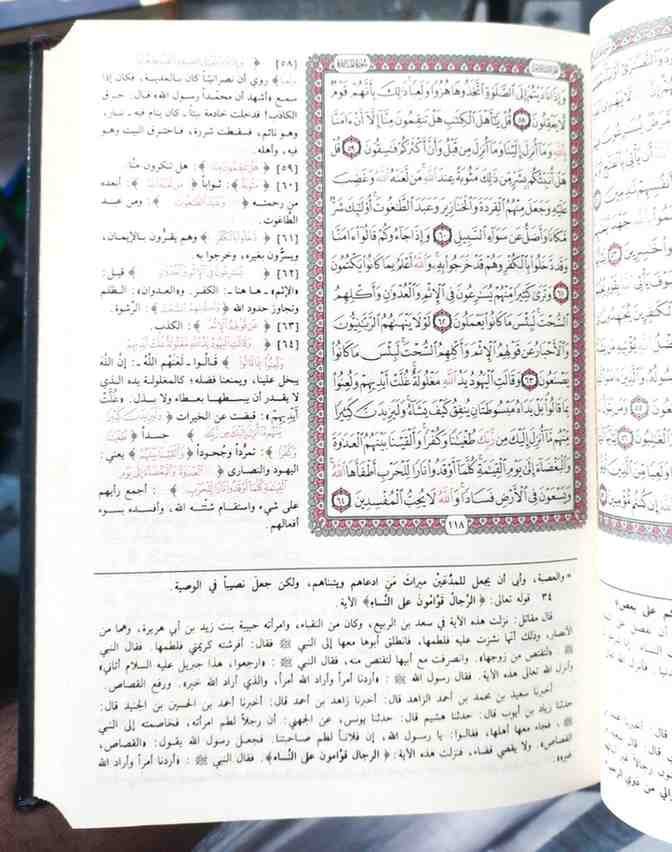 وَإِذَا نَادَيْتُمْ إِلَى الصَّلَوٰةِ اتَّخَذُوهَا هُزُوًا وَلَعِبًا ذَٰلِكَ بِأَنَّهُمْ قَوْمٌ
لَا يَعْقِلُونَ ٥٨ قُلْ يَٰٓأَهْلَ الْكِتَٰبِ هَلْ تَنقِمُونَ مِنَّآ إِلَّآ أَنْ ءَامَنَّا
بِاللَّهِ وَمَآ أُنزِلَ إِلَيْنَا وَمَآ أُنزِلَ مِن قَبْلُ وَأَنَّ أَكْثَرَكُمْ فَٰسِقُونَ ٥٩ قُلْ
هَلْ أُنَبِّئُكُم بِشَرٍّ مِّن ذَٰلِكَ مَثُوبَةً عِندَ اللَّهِ مَن لَّعَنَهُ اللَّهُ وَغَضِبَ
عَلَيْهِ وَجَعَلَ مِنْهُمُ الْقِرَدَةَ وَالْخَنَازِيرَ وَعَبَدَ الطَّٰغُوتَ أُو۟لَٰٓئِكَ شَرٌّ
مَّكَانًا وَأَضَلُّ عَن سَوَآءِ السَّبِيلِ ٦٠ وَإِذَا جَآءُوكُمْ قَالُوٓا۟ ءَامَنَّا
وَقَد دَّخَلُوا۟ بِالْكُفْرِ وَهُمْ قَدْ خَرَجُوا۟ بِهِۦ وَاللَّهُ أَعْلَمُ بِمَا كَانُوا۟ يَكْتُمُونَ
٦١ وَتَرَىٰ كَثِيرًا مِّنْهُمْ يُسَٰرِعُونَ فِي الْإِثْمِ وَالْعُدْوَٰنِ وَأَكْلِهِمُ
السُّحْتَ لَبِئْسَ مَا كَانُوا۟ يَعْمَلُونَ ٦٢ لَوْلَا يَنْهَىٰهُمُ الرَّبَّٰنِيُّونَ
وَالْأَحْبَارُ عَن قَوْلِهِمُ الْإِثْمَ وَأَكْلِهِمُ السُّحْتَ لَبِئْسَ مَا كَانُوا۟
يَصْنَعُونَ ٦٣ وَقَالَتِ الْيَهُودُ يَدُ اللَّهِ مَغْلُولَةٌ غُلَّتْ أَيْدِيهِمْ وَلُعِنُوا۟
بِمَا قَالُوا۟ بَلْ يَدَاهُ مَبْسُوطَتَانِ يُنفِقُ كَيْفَ يَشَآءُ وَلَيَزِيدَنَّ كَثِيرًا
مِّنْهُم مَّآ أُنزِلَ إِلَيْكَ مِن رَّبِّكَ طُغْيَٰنًا وَكُفْرًا وَأَلْقَيْنَا بَيْنَهُمُ الْعَدَٰوَةَ
وَالْبَغْضَآءَ إِلَىٰ يَوْمِ الْقِيَٰمَةِ كُلَّمَآ أَوْقَدُوا۟ نَارًا لِّلْحَرْبِ أَطْفَأَهَا اللَّهُ
وَيَسْعَوْنَ فِي الْأَرْضِ فَسَادًا وَاللَّهُ لَا يُحِبُّ الْمُفْسِدِينَ ٦٤
١١٨
[٥٨] ﴿
﴾ روي أن نصرانيّاً كان بالمدينة، فكان إذا
سمع «أشهد أن محمّداً رسول الله» قال: حرق
الكاذب؛ فدخلت خادمة بيتاً، كان ينام فيه، بنار،
وهو نائم، فسقطت شررة، فاحترق البيت وهو
فيه، وأهله.
[٥٩] ﴿هَلْ تَنقِمُونَ مِنَّآ﴾: هل تنكرون منّا.
[٦٠] ﴿مَثُوبَةً﴾: ثواباً ﴿مَن لَّعَنَهُ اللَّهُ﴾: أبعده
من رحمته ﴿وَعَبَدَ الطَّٰغُوتَ﴾: ومن عبد
الطاغوت.
[٦١] ﴿دَّخَلُوا۟ بِالْكُفْرِ﴾ وهم يقرّون بالإيمان،
ويسرّون بغيره، وخرجوا به.
[٦٢] ﴿يُسَٰرِعُونَ فِي الْإِثْمِ وَالْعُدْوَٰنِ﴾ قيل:
«الإثم» ـ هاهنا ـ: الكفر. و«العدوان»: الظلم
وتجاوز حدود الله ﴿وَأَكْلِهِمُ السُّحْتَ﴾: الرّشوة.
[٦٣] ﴿عَن قَوْلِهِمُ الْإِثْمَ﴾: الكذب.
[٦٤] ﴿وَقَالَتِ الْيَهُودُ يَدُ اللَّهِ مَغْلُولَةٌ غُلَّتْ أَيْدِيهِمْ
وَلُعِنُوا۟ بِمَا قَالُوا۟﴾ قالوا ـ لعنهم الله ـ: إنّ الله
يبخل علينا، ويمنعنا فضله؛ كالمغلولة يده الذي
لا يقدر أن يبسطها بعطاء ولا بذل. «غُلَّتْ
أَيْدِيهِمْ»: قبضت عن الخيرات ﴿وَلَيَزِيدَنَّ كَثِيرًا
﴾ حسداً ﴿طُغْيَٰنًا
وَكُفْرًا﴾: تمرّداً وجحوداً ﴿وَأَلْقَيْنَا بَيْنَهُمُ﴾ يعني:
اليهود والنصارى ﴿الْعَدَٰوَةَ وَالْبَغْضَآءَ إِلَىٰ يَوْمِ
الْقِيَٰمَةِ كُلَّمَآ أَوْقَدُوا۟ نَارًا لِّلْحَرْبِ﴾: أجمع رأيهم
على شيء واستقام شتّته الله، وأفسده بسوء
أفعالهم.
= والعصبة، وأبى أن يجعل للمدَّعَينَ ميراث مَنِ ادعاهم ويتبناهم، ولكن جعل نصيباً في الوصية.
٣٤ قوله تعالى: ﴿الرِّجالُ قوّامونَ على النِّساءِ﴾ الآية.
قال مقاتل: نزلت هذه الآية في سعد بن الربيع، وكان من النقباء، وامرأته حبيبة بنت زيد بن أبي هريرة، وهما من
الأنصار، وذلك أنها نشزت عليه فلطمها، فانطلق أبوها معها إلى النبي ﷺ فقال: أفرشته كريمتي فلطمها. فقال النبي
ﷺ «لتقتص من زوجها». وانصرفت مع أبيها لتقتص منه، فقال النبي ﷺ: «ارجعوا، هذا جبريل عليه السلام أتاني»
وأنزل الله تعالى هذه الآية. فقال رسول الله ﷺ: «أردنا أمراً وأراد الله أمراً، والذي أراد الله خير». ورفع القصاص.
أخبرنا سعيد بن محمد بن أحمد الزاهد قال: أخبرنا زاهد بن أحمد قال: أخبرنا أحمد بن الحسين بن الجنيد قال:
حدثنا زياد بن أيوب قال: حدثنا هشيم قال: حدثنا يونس، عن الجهني: أن رجلاً لطم امرأته، فخاصمته إلى النبي
ﷺ، فجاء معها أهلها، فقالوا: يا رسول الله، إن فلاناً لطم صاحبتنا. فجعل رسول الله يقول: «القصاص،
القصاص». ولا يقضي قضاء، فنزلت هذه الآية: ﴿الرجال قوّامون على النِّساءِ﴾. فقال النبي ﷺ: «أردنا أمراً وأراد الله
غيره».